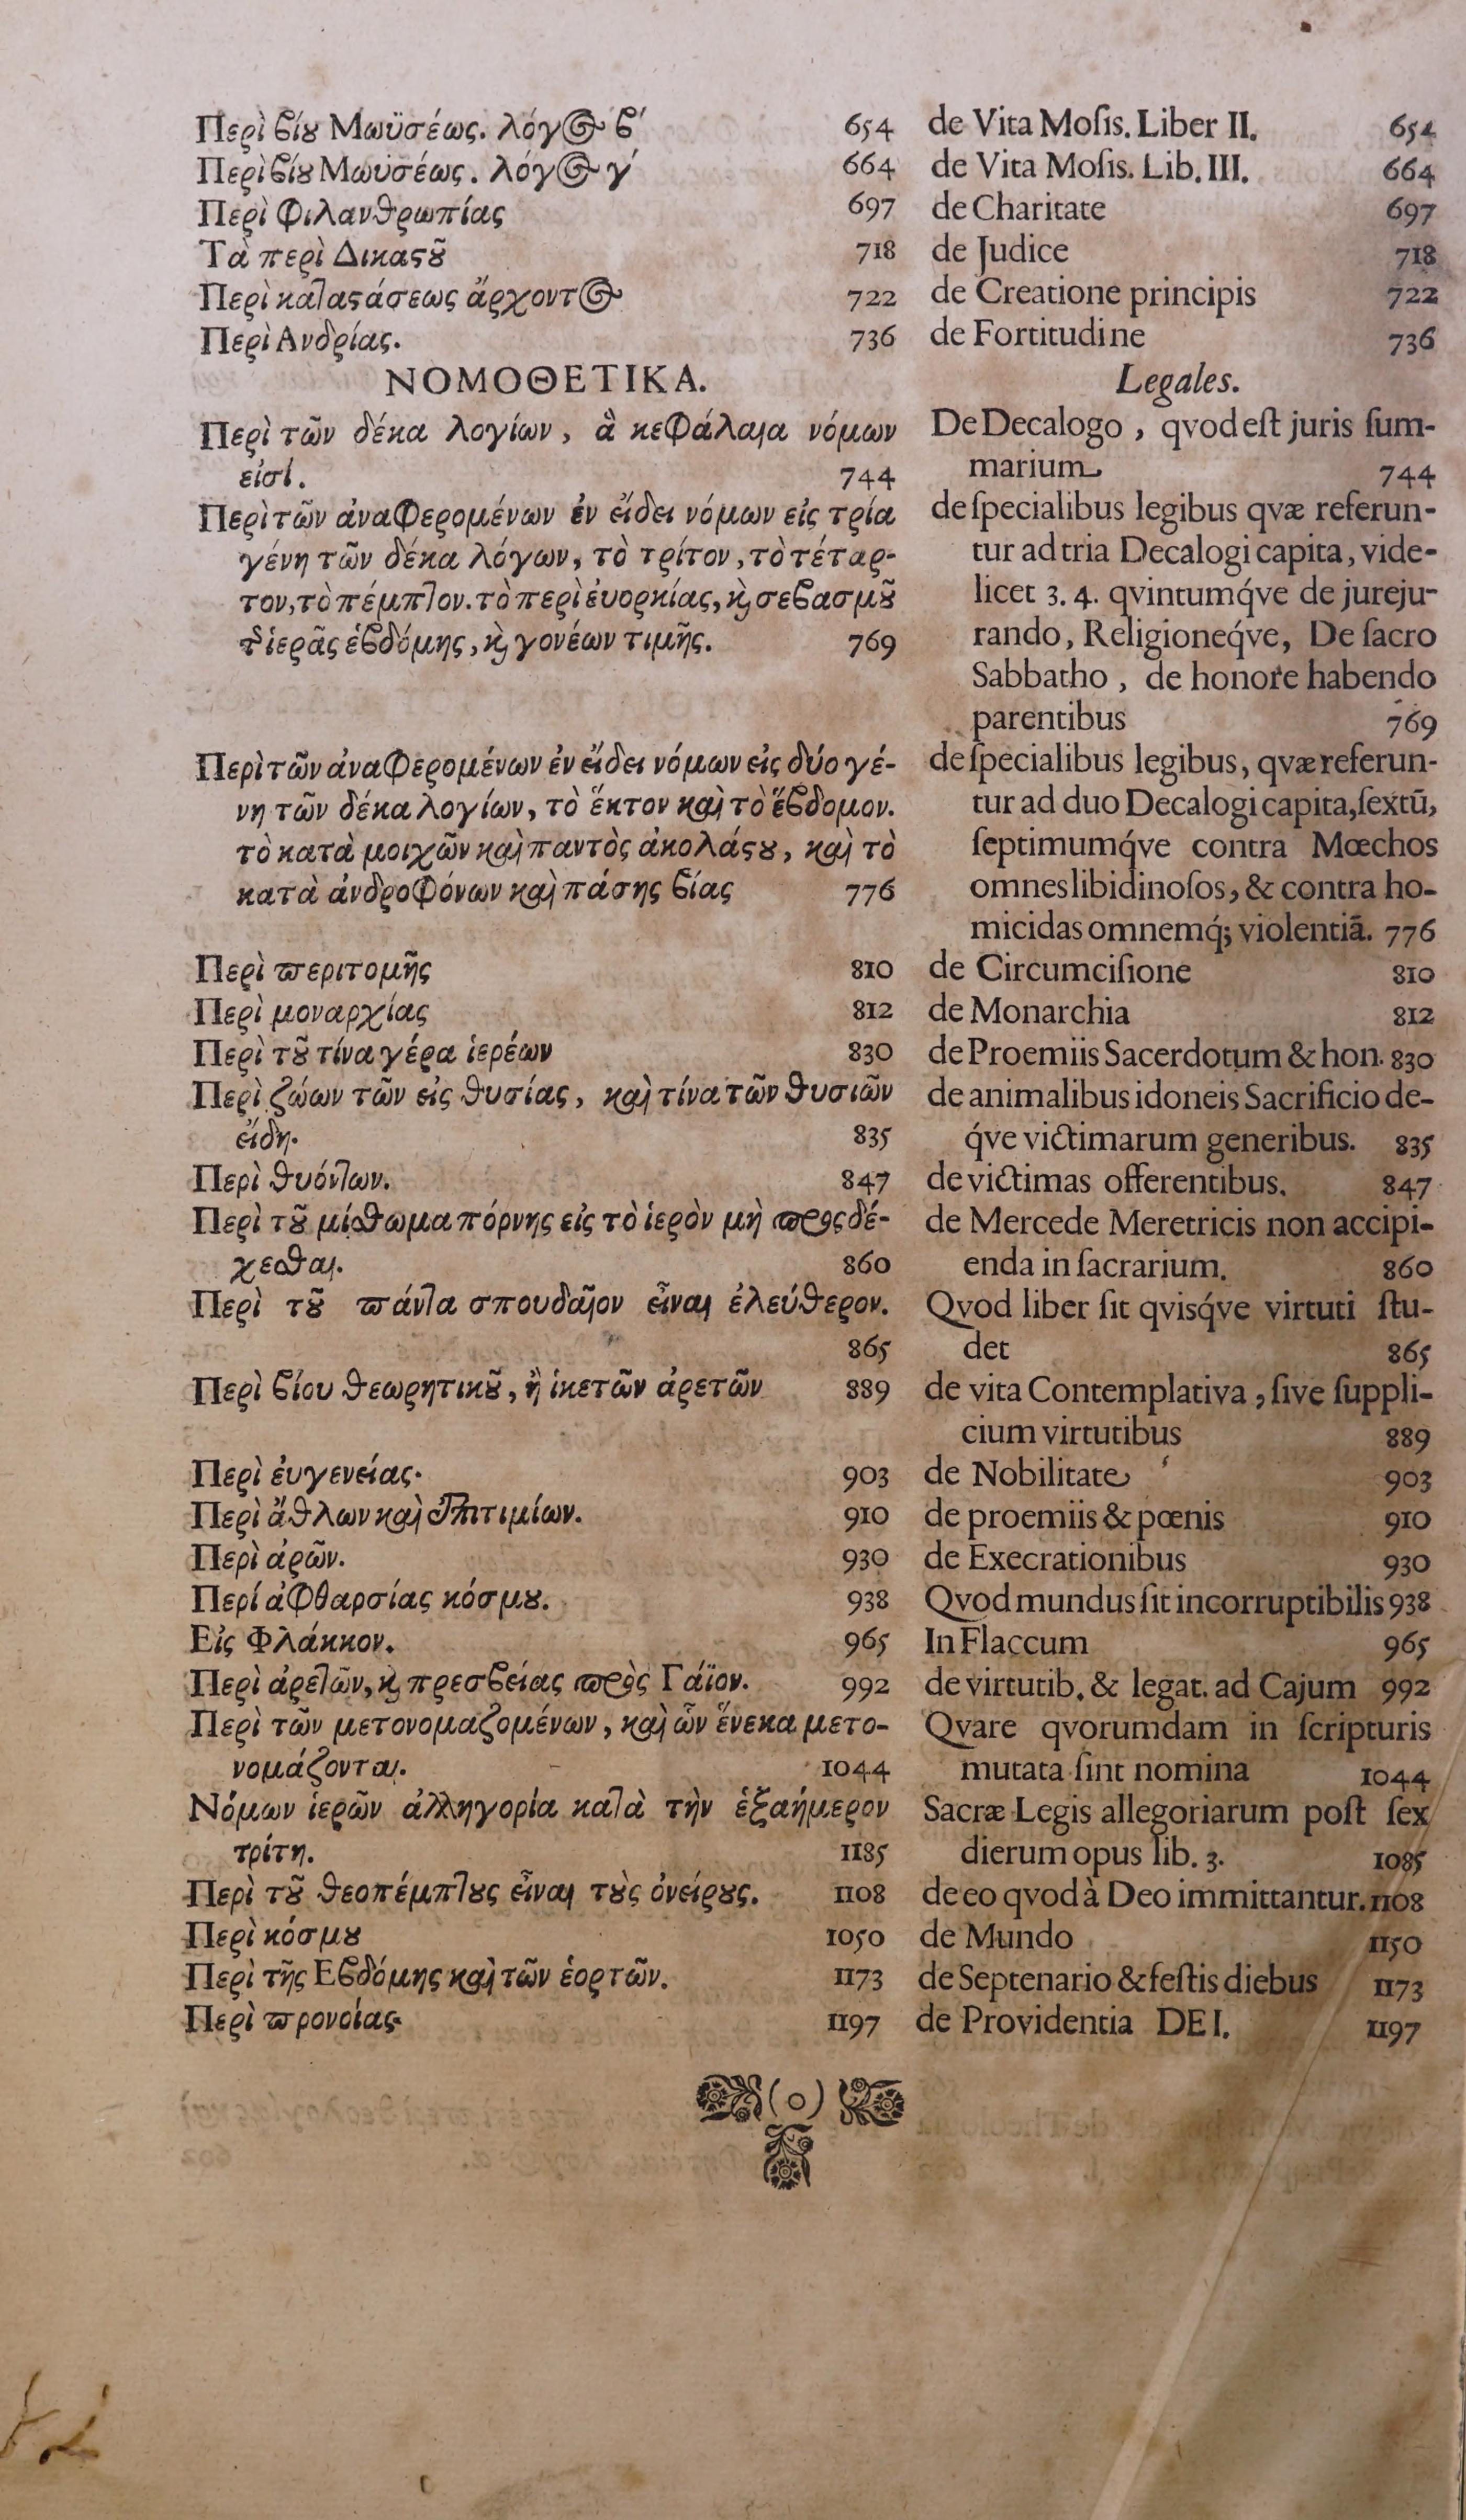 Περὶ βίου Μωϋσέως. λόγος β΄ 654
Περὶ βίου Μωϋσέως. λόγος γ΄ 664
Περὶ Φιλανθρωπίας 697
Τὰ περὶ Δικαστοῦ 718
Περὶ καταστάσεως ἄρχοντος 722
Περὶ Ανδρίας. 736
ΝΟΜΟΘΕΤΙΚΑ.
Περὶ τῶν δέκα λογίων, ἃ κεφάλαια νόμων
εἰσί. 744
Περὶ τῶν ἀναφερομένων ἐν εἴδει νόμων εἰς τρία
γένη τῶν δέκα λόγων, τὸ τρίτον, τὸ τέταρ-
τον, τὸ πέμπτον. τὸ περὶ ἐυορκίας, καὶ σεβασμοῦ
τῆς ἱερᾶς ἑβδόμης, καὶ γονέων τιμῆς. 769
Περὶ τῶν ἀναφερομένων ἐν εἴδει νόμων εἰς δύο γέ-
νη τῶν δέκα λογίων, τὸ ἕκτον καὶ τὸ ἕβδομον.
τὸ κατὰ μοιχῶν καὶ παντὸς ἀκολάστου, καὶ τὸ
κατὰ ἀνδροφόνων καὶ πάσης βίας 776
Περὶ περιτομῆς 810
Περὶ μοναρχίας 812
Περὶ τοῦ τίνα γέρα ἱερέων 830
Περὶ ζώων τῶν εἰς θυσίας, καὶ τίνα τῶν θυσιῶν
εἴδη. 835
Περὶ θυόντων. 847
Περὶ τοῦ μίσθωμα πόρνης εἰς τὸ ἱερὸν μὴ προσδέ-
χεσθαι. 860
Περὶ τοῦ πάντα σπουδαῖον εἶναι ἐλεύθερον.
865
Περὶ βίου θεωρητικοῦ, ἢ ἱκετῶν ἀρετῶν 889
Περὶ ἐυγενείας. 903
Περὶ ἄθλων καὶ ἐπιτιμίων. 910
Περὶ ἀρῶν. 930
Περί ἀφθαρσίας κόσμου. 938
Εἰς Φλάκκον. 965
Περὶ ἀρετῶν, καὶ πρεσβείας πρὸς Γάϊον. 992
Περὶ τῶν μετονομαζομένων, καὶ ὧν ἕνεκα μετο-
νομάζονται. 1044
Νόμων ἱερῶν ἀλληγορία κατὰ τὴν ἑξαήμερον
τρίτη. 1185
Περὶ τοῦ θεοπέμπτους εἶναι τοὺς ὀνείρους. 1108
Περὶ κόσμου 1050
Περὶ τῆς Εβδόμης καὶ τῶν ἑορτῶν. 1173
Περὶ προνοίας. 1197
de Vita Moſis. Liber II. 654
de Vita Moſis. Lib. III. 664
de Charitate 697
de Judice 718
de Creatione principis 722
de Fortitudine 736
Legales.
De Decalogo, qvod eſt juris ſum-
marium 744
de ſpecialibus legibus qvæ referun-
tur ad tria Decalogi capita, vide-
licet 3. 4. qvintumq́ve de jureju-
rando, Religioneq́ve, De ſacro
Sabbatho, de honore habendo
parentibus 769
de ſpecialibus legibus, qvæ referun-
tur ad duo Decalogi capita, ſextũ,
ſeptimumq́ve contra Mœchos
omnes libidinoſos, & contra ho-
micidas omnemq́; violentiã. 776
de Circumciſione 810
de Monarchia 812
de Proemiis Sacerdotum & hon. 830
de animalibus idoneis Sacrificio de-
q́ve victimarum generibus. 835
de victimas offerentibus. 847
de Mercede Meretricis non accipi-
enda in ſacrarium. 860
Qvod liber ſit qvisq́ve virtuti ſtu-
det 865
de vita Contemplativa, ſive ſuppli-
cium virtutibus 889
de Nobilitate 903
de proemiis & pœnis 910
de Execrationibus 930
Qvod mundus ſit incorruptibilis 938
In Flaccum 965
de virtutib. & legat. ad Cajum 992
Qvare qvorumdam in ſcripturis
mutata ſint nomina 1044
Sacræ Legis allegoriarum poſt ſex
dierum opus lib. 3. 1085
de eo qvod à Deo immittantur. 1108
de Mundo 1150
de Septenario & feſtis diebus 1173
de Providentia DEI. 1197
(o)